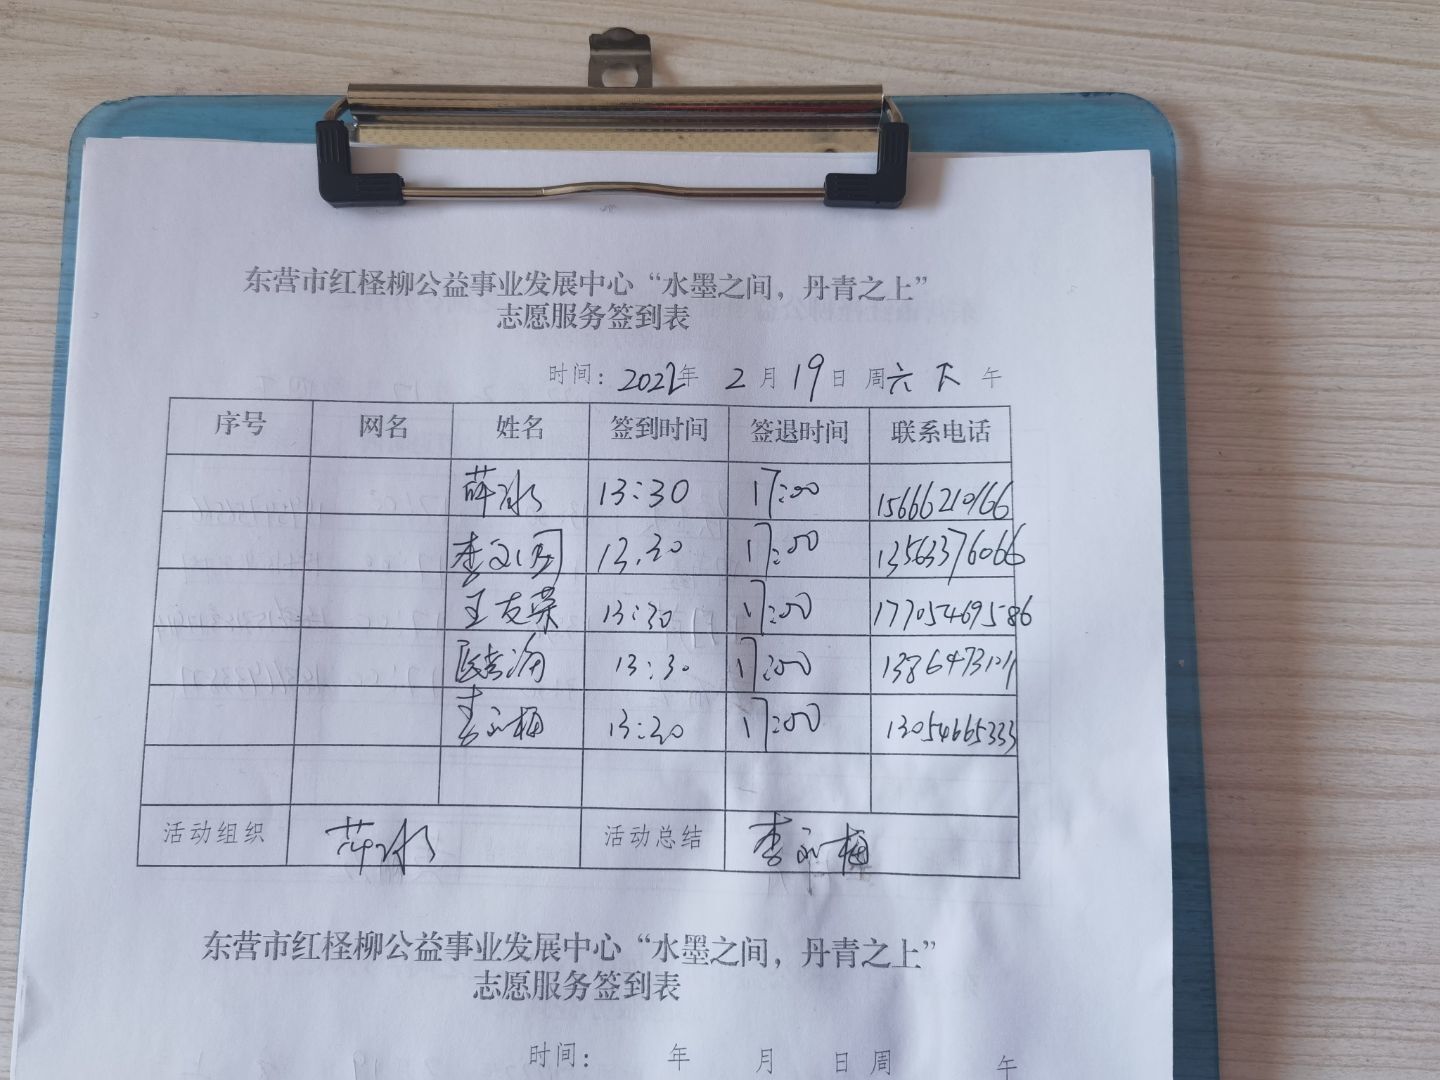 东营市红柽柳公益事业发展中心“水墨之间，丹青之上”
志愿服务签到表
时间：2022年 2月19日 周六 下午
序号 网名 姓名 签到时间 签退时间 联系电话
薛冰 13:30 17:00 15666210166
李文国 13.30 17:00 13563376066
王友荣 13:30 17:00 17705469586
13:30 17:00
李永梅 13:30 17:00 13054665333
活动组织 薛冰 活动总结 李永梅
东营市红柽柳公益事业发展中心“水墨之间，丹青之上”
志愿服务签到表
时间： 年 月 日 周 午